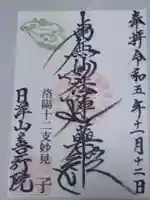 奉拝 令和五年十二月十二日
南無妙法蓮華経
洛陽十二支妙見
子
日洋山善行院